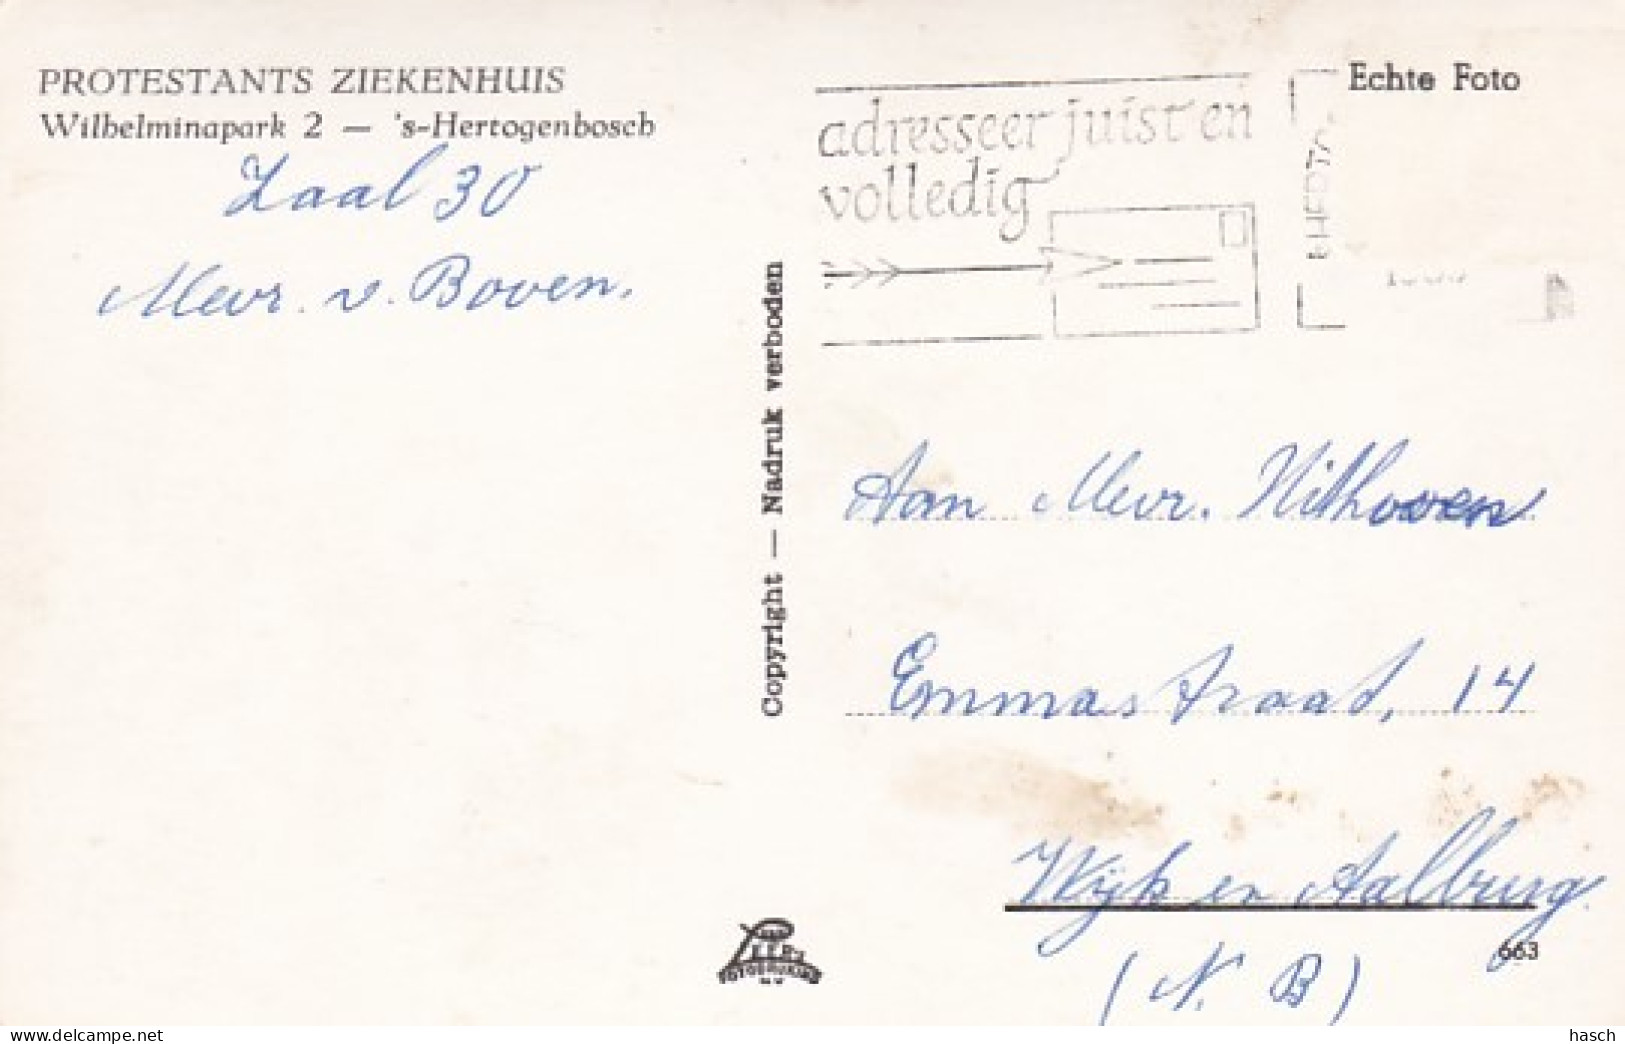 PROTESTANTS ZIEKENHUIS
Wilhelminapark 2 — 's-Hertogenbosch
Zaal 30
Mevr. v. Boven.
adresseer juist en
volledig
Echte Foto
Copyright — Nadruk verboden
Aan Mevr. Nithoven
Emmastraat, 14
Wijk en Aalburg.
(N. B)
663
delcampe.net
hasch